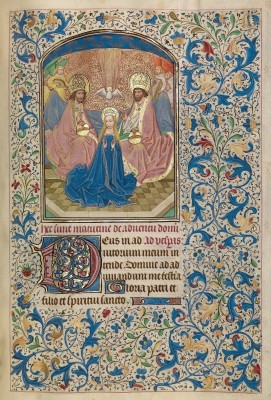 Hec sunt matutine de adventu domi
Deus in ad ad vesperas
iutorium meum in
tende. Domine ad ad
iuvandum me festina
Gloria patri et
filio et spiritui sancto.